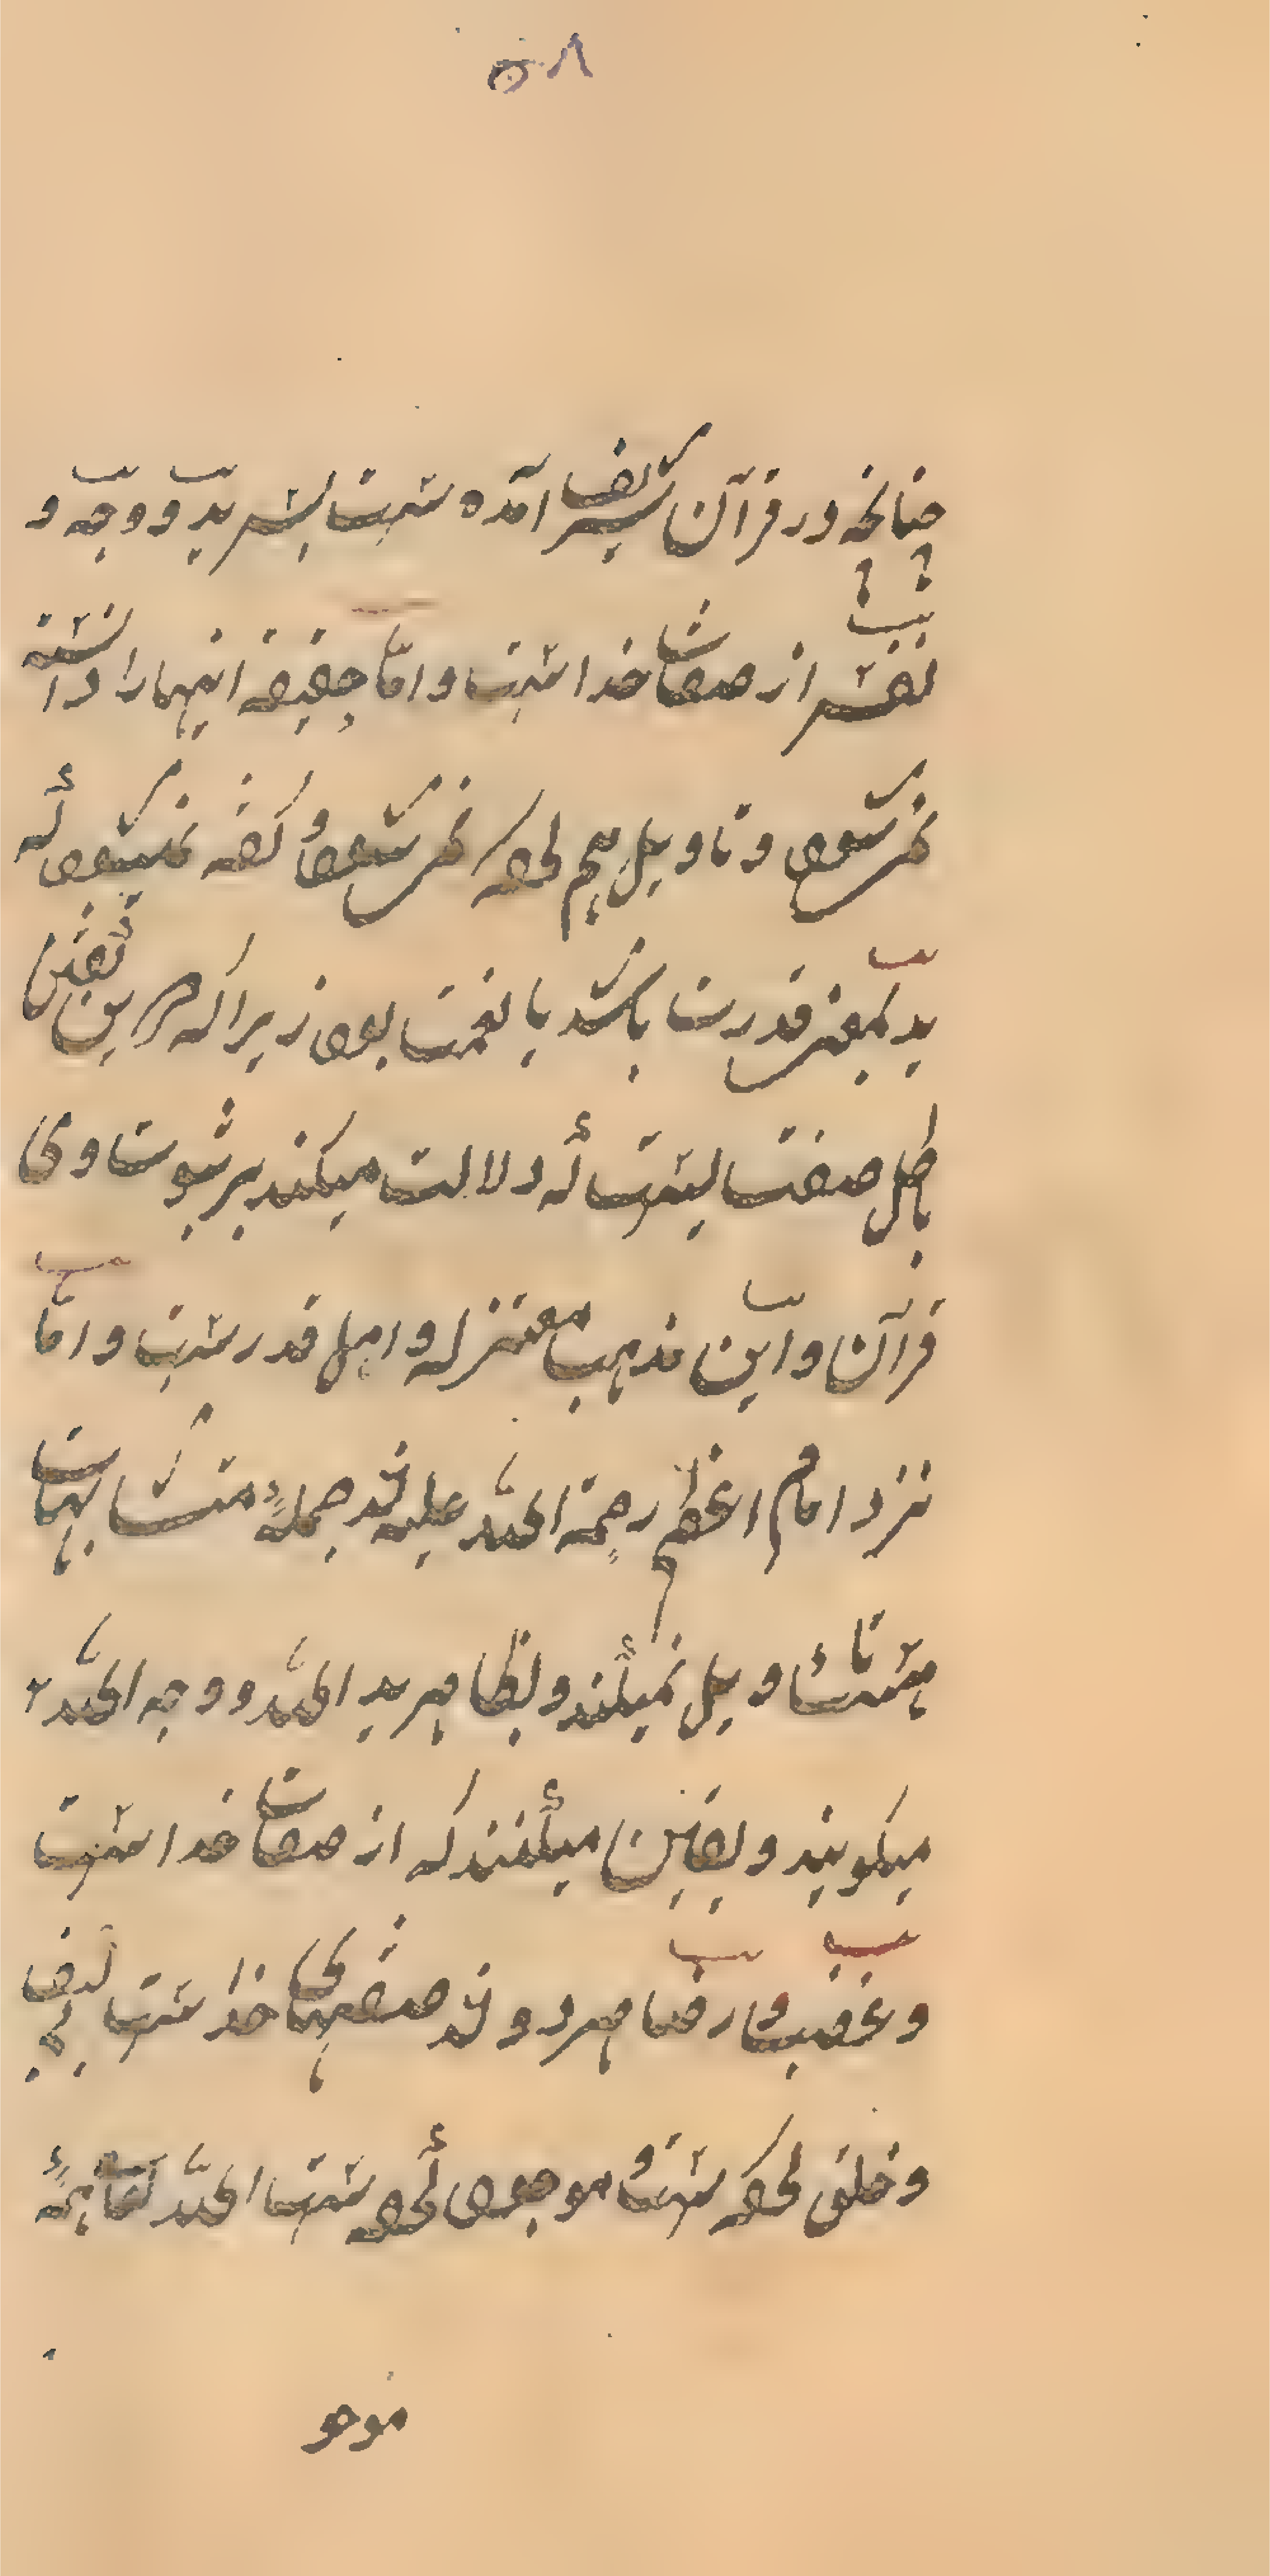 ۵۰۸
چنانچه در قرآن شریف آمده ست پس ید و وجه و
نفس از صفات خدا ست و اما حقیقة اینها را دانسته
نمی شود و تاویل هم کرده نمی شود و گفته نمیشود که
ید بمعنی قدرت باشد یا نعمت بود زیرا که درین تفتیش
باطل صفت ست که دلالت میکند بر ثبوت وی
قرآن و این مذهب معتزله و اهل قدر ست و اما
نزد امام اعظم رحمة الله علیه جمله متشابهات
تاویل نمیکنند و بظاهر ید الله و وجه الله
میگویند و یقین میکنند که از صفات خدا ست
و غضب و رضا هر دو صفتهای خدا ست
و خلق کرده ست موجود کرده ست الله تعالی همهٔ
موجو